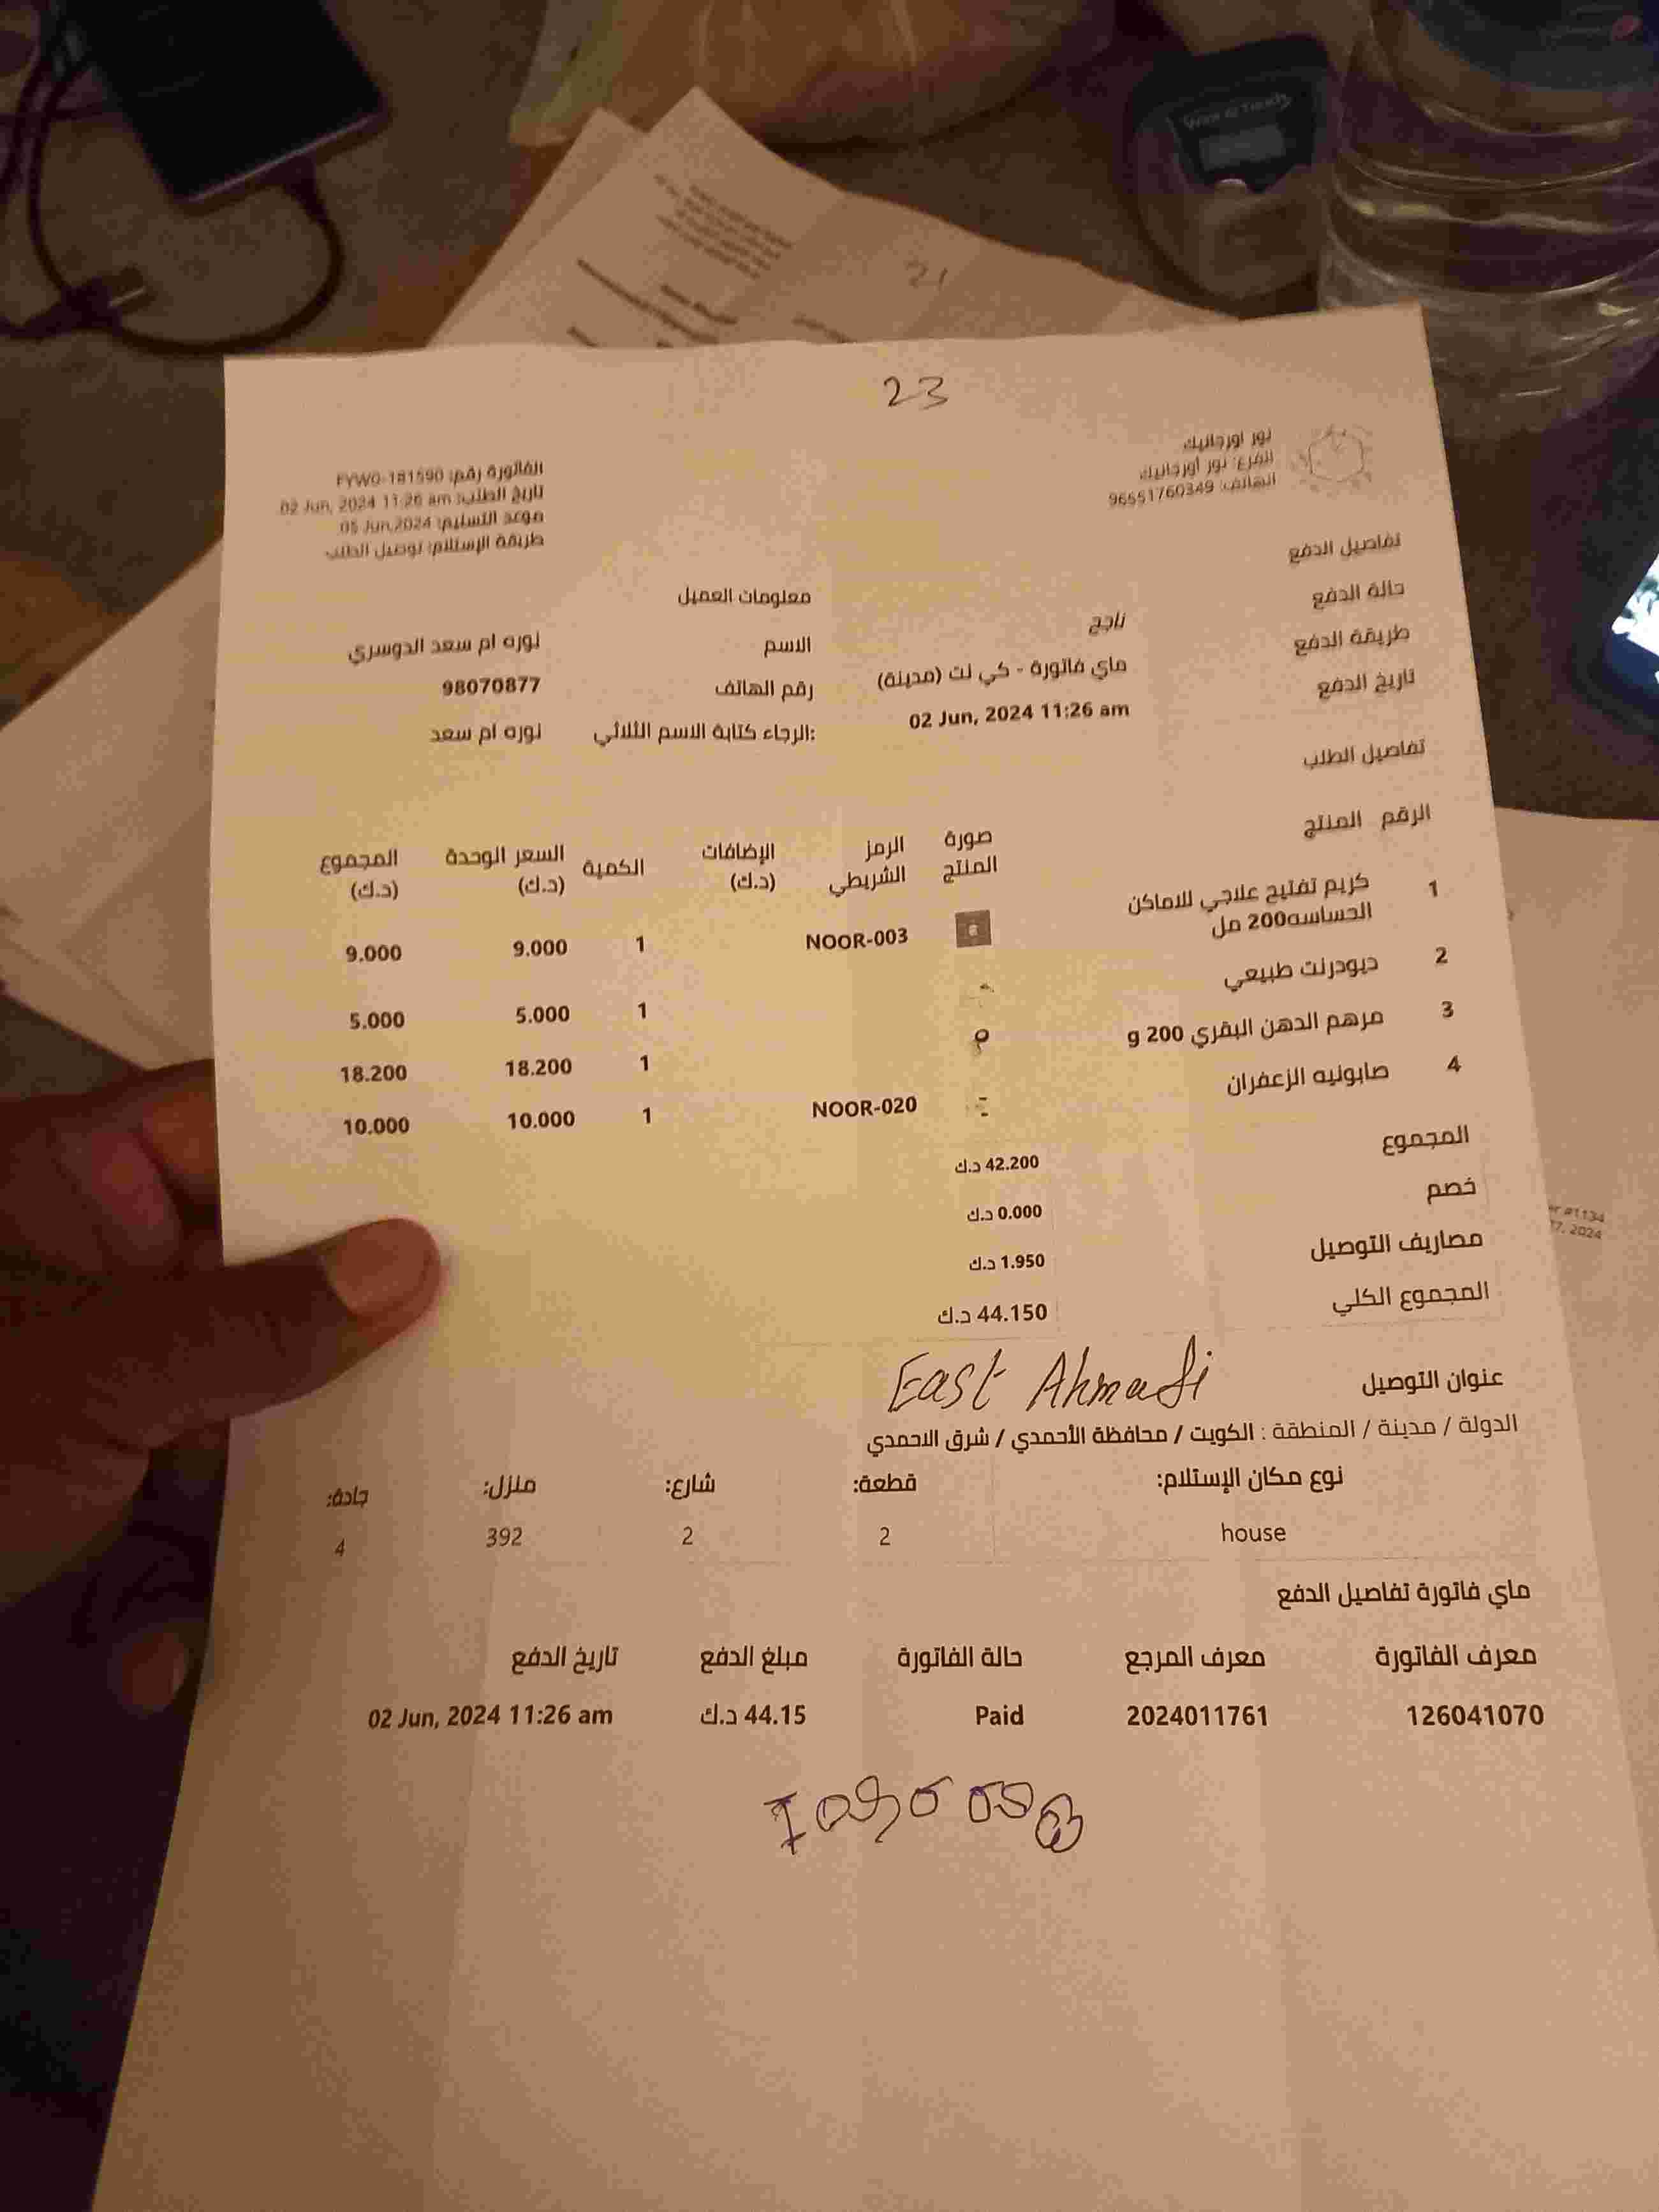 23
نور اورجانيك
الفرع: نور أورجانيك
الهاتف: 96551760349
الفاتورة رقم: FYWO-181590
تاريخ الطلب: 02 Jun, 2024 11:26 am
موعد التسليم: 05 Jun,2024
طريقة الإستلام: توصيل الطلب
تفاصيل الدفع
حالة الدفع ناجح
طريقة الدفع ماي فاتورة - كي نت (مدينة)
تاريخ الدفع 02 Jun, 2024 11:26 am
معلومات العميل
الاسم نوره ام سعد الدوسري
رقم الهاتف 98070877
الرجاء كتابة الاسم الثلاثي: نوره ام سعد
تفاصيل الطلب
الرقم المنتج صورة المنتج الرمز الشريطي الإضافات (د.ك) الكمية السعر الوحدة (د.ك) المجموع (د.ك)
1 كريم تفتيح علاجي للاماكن الحساسه200 مل NOOR-003 1 9.000 9.000
2 ديودرنت طبيعي 1 5.000 5.000
3 مرهم الدهن البقري 200 g 1 18.200 18.200
4 صابونيه الزعفران NOOR-020 1 10.000 10.000
المجموع 42.200 د.ك
خصم 0.000 د.ك
مصاريف التوصيل 1.950 د.ك
المجموع الكلي 44.150 د.ك
East Ahmadi
عنوان التوصيل
الدولة / مدينة / المنطقة : الكويت / محافظة الأحمدي / شرق الاحمدي
نوع مكان الإستلام: قطعة: شارع: منزل: جادة:
house 2 2 392 4
ماي فاتورة تفاصيل الدفع
معرف الفاتورة معرف المرجع حالة الفاتورة مبلغ الدفع تاريخ الدفع
126041070 2024011761 Paid 44.15 د.ك 02 Jun, 2024 11:26 am
21
#1134
7, 2024